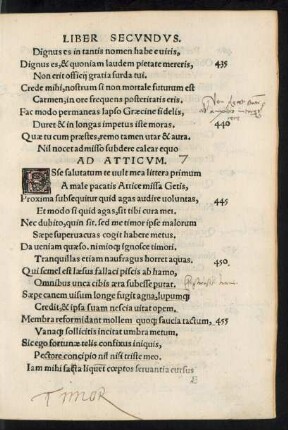 LIBER SECVNDVS.
Dignus es in tantis nomen habere uiris,
Dignus es, & quoniam laudem pietate mereris, 435
Non erit officij gratia surda tui.
Crede mihi, nostrum si non mortale futurum est
Carmen, in ore frequens posteritatis eris.
Fac modo permaneas lapso Græcine fidelis,
Duret & in longas impetus iste moras. 440
Quæ tu cum præstes, remo tamen utar & aura.
Nil nocet admisso subdere calcar equo
AD ATTICVM. 7
ESse salutatum te uult mea littera primum
A male pacatis Attice missa Getis,
Proxima subsequitur quid agas audire uoluntas, 445
Et modo si quid agas, sit tibi cura mei.
Nec dubito, quin sit, sed me timor ipse malorum
Sæpe superuacuos cogit habere metus.
Da ueniam quæso. nimioqʒ ignosce timori.
Tranquillas etiam naufragus horret aquas. 450.
Qui semel est læsus fallaci piscis ab hamo,
Omnibus unca cibis æra subesse putat.
Sæpe canem uisum longe fugit agna, lupumqʒ
Credit, & ipsa suam nescia uitat opem.
Membra reformidant mollem quoqʒ saucia tactum, 455
Vanaqʒ sollicitis incitat umbra metum,
Sic ego fortunæ telis confixus iniquis,
Pectore concipio nil nisi triste meo.
Iam mihi fata liquet cœptos seruantia cursus
TIMOR